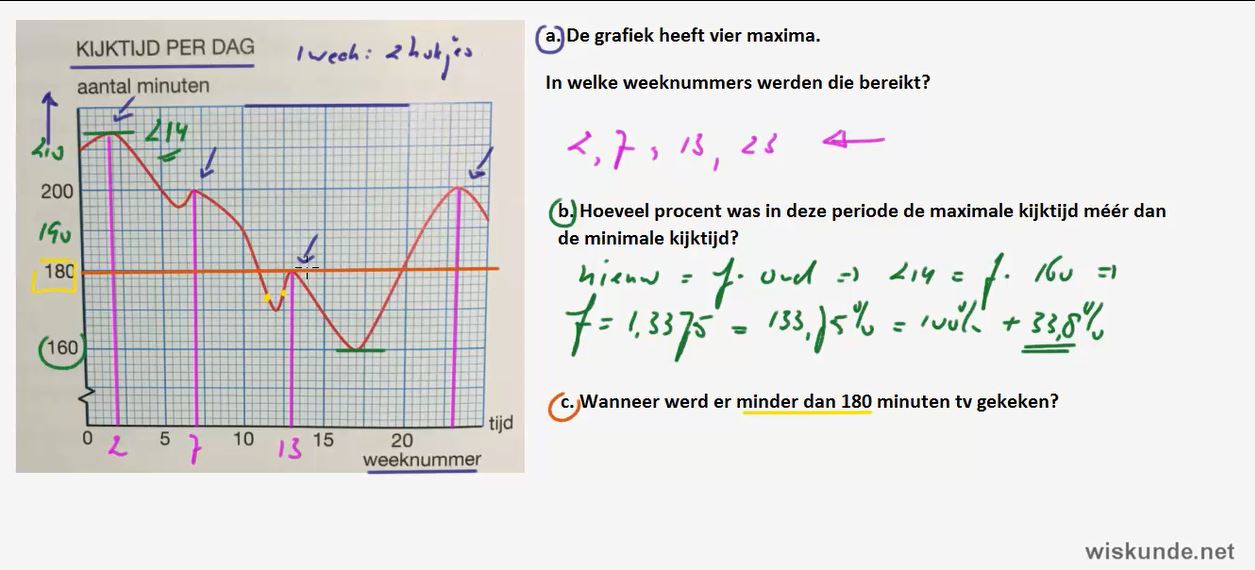 KIJKTIJD PER DAG
1 week: 2 hokjes
aantal minuten
214
210
200
190
180
160
0 5 10 15 20
tijd
2 7 13
weeknummer
a. De grafiek heeft vier maxima.
In welke weeknummers werden die bereikt?
2, 7, 13, 23
b. Hoeveel procent was in deze periode de maximale kijktijd méér dan
de minimale kijktijd?
nieuw = f · oud => 214 = f · 160 =>
f = 1,3375 = 133,75% = 100% + 33,8%
c. Wanneer werd er minder dan 180 minuten tv gekeken?
wiskunde.net